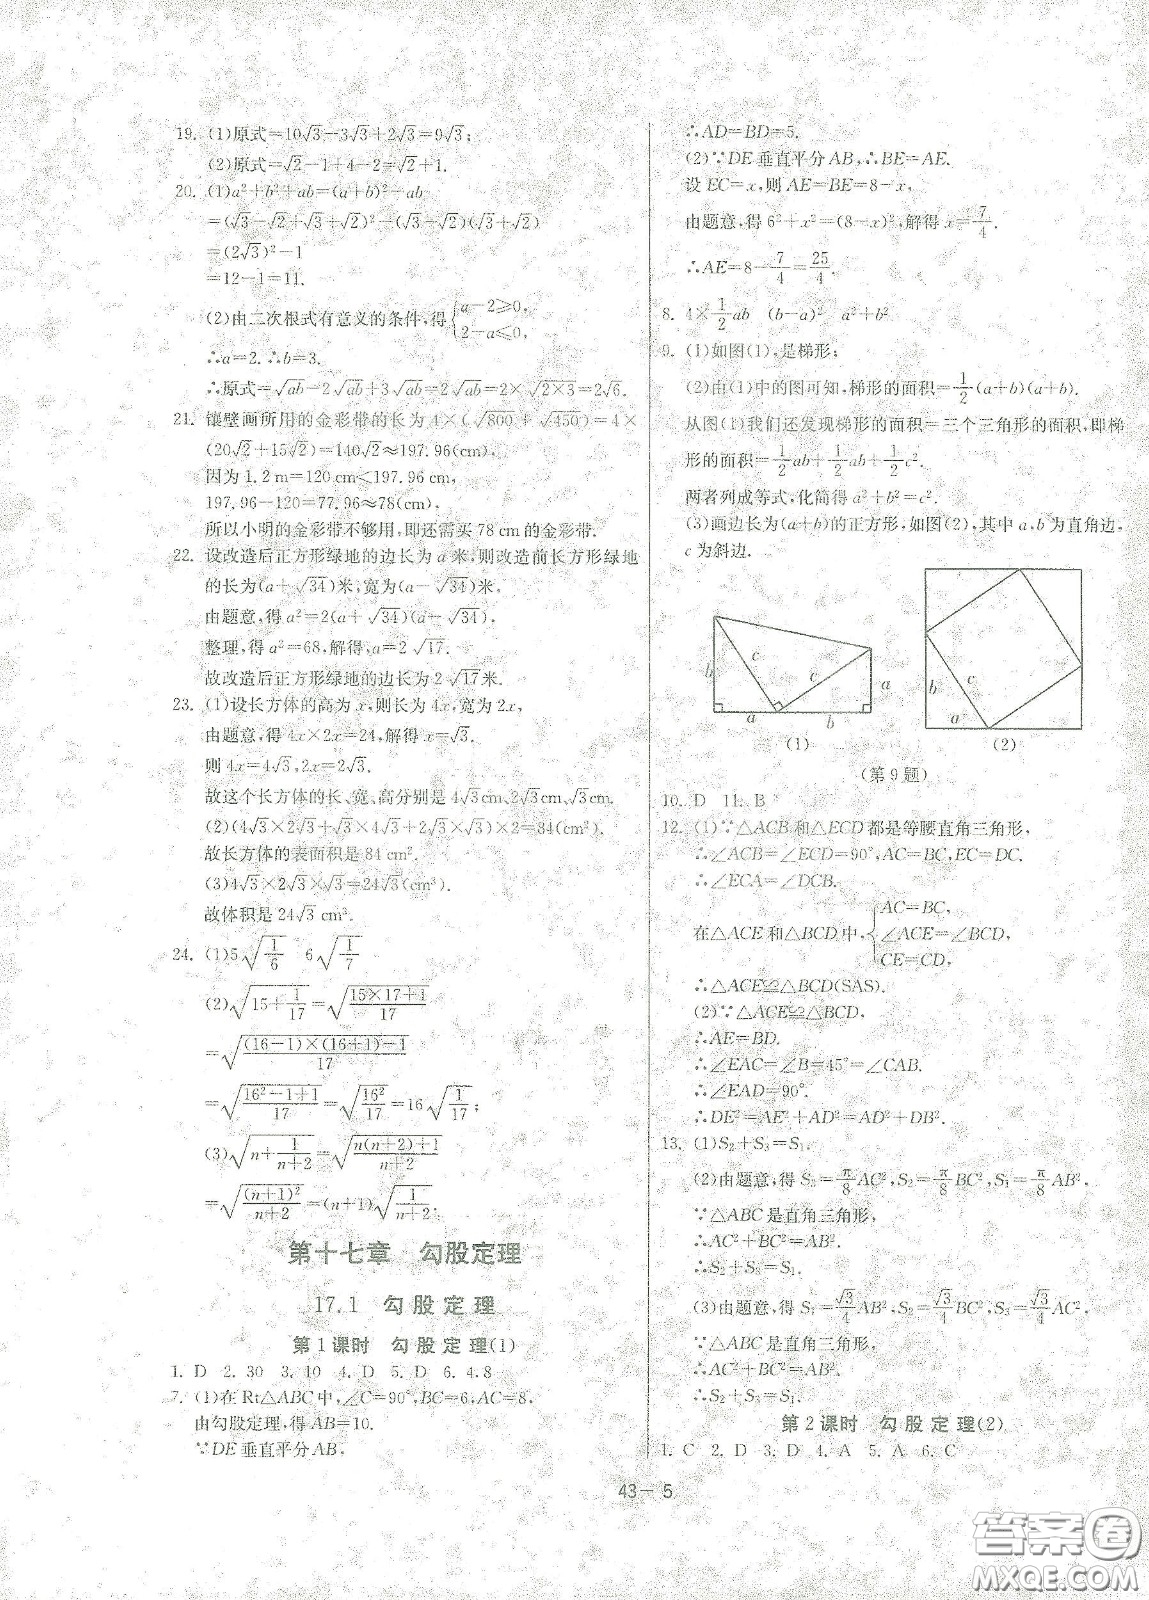 19. (1)原式=10√3-3√3+2√3=9√3;
(2)原式=√2-1+4-2=√2+1.
20. (1)a²+b²+ab=(a+b)²-ab
=(√3-√2+√3+√2)²-(√3-√2)(√3+√2)
=(2√3)²-1
=12-1=11.
(2)由二次根式有意义的条件,得{a-2≥0,
2-a≤0,
∴a=2.∴b=3.
∴原式=√ab-2√ab+3√ab=2√ab=2×√2×3=2√6.
21. 镶壁画所用的金彩带的长为4×(√800+√450)=4×
(20√2+15√2)=140√2≈197.96(cm),
因为1.2 m=120 cm<197.96 cm,
197.96-120=77.96≈78(cm),
所以小明的金彩带不够用,即还需买78 cm的金彩带.
22. 设改造后正方形绿地的边长为a米,则改造前长方形绿地
的长为(a+√34)米,宽为(a-√34)米,
由题意,得a²=2(a+√34)(a-√34),
整理,得a²=68,解得,a=2√17.
故改造后正方形绿地的边长为2√17米.
23. (1)设长方体的高为x,则长为4x,宽为2x,
由题意,得4x×2x=24,解得x=√3.
则4x=4√3,2x=2√3.
故这个长方体的长、宽、高分别是4√3cm,2√3cm,√3cm.
(2)(4√3×2√3+√3×4√3+2√3×√3)×2=84(cm²).
故长方体的表面积是84 cm².
(3)4√3×2√3×√3=24√3(cm³).
故体积是24√3 cm³.
24. (1)5√(1/6) 6√(1/7)
(2)√(15+1/17)=√((15×17+1)/17)
=√(((16-1)×(16+1)+1)/17)
=√((16²-1+1)/17)=√(16²/17)=16√(1/17);
(3)√(n+1/(n+2))=√((n(n+2)+1)/(n+2))
=√((n+1)²/(n+2))=(n+1)√(1/(n+2)).
第十七章 勾股定理
17.1 勾股定理
第1课时 勾股定理(1)
1. D 2. 30 3. 10 4. D 5. D 6. 4.8
7. (1)在Rt△ABC中,∠C=90°,BC=6,AC=8,
由勾股定理,得AB=10.
∵DE垂直平分AB,
∴AD=BD=5.
(2)∵DE垂直平分AB,∴BE=AE.
设EC=x,则AE=BE=8-x,
由题意,得6²+x²=(8-x)²,解得x=7/4.
∴AE=8-7/4=25/4.
8. 4×1/2ab (b-a)² a²+b²
9. (1)如图(1),是梯形;
(2)由(1)中的图可知,梯形的面积=1/2(a+b)(a+b).
从图(1)我们还发现梯形的面积=三个三角形的面积,即梯
形的面积=1/2ab+1/2ab+1/2c².
两者列成等式,化简得a²+b²=c².
(3)画边长为(a+b)的正方形,如图(2),其中a,b为直角边,
c为斜边.
b c c a
a b
b c
a
(1) (2)
(第9题)
10. D 11. B
12. (1)∵△ACB和△ECD都是等腰直角三角形,
∴∠ACB=∠ECD=90°,AC=BC,EC=DC.
∴∠ECA=∠DCB.
AC=BC,
在△ACE和△BCD中,{∠ACE=∠BCD,
CE=CD,
∴△ACE≌△BCD(SAS).
(2)∵△ACE≌△BCD,
∴AE=BD.
∴∠EAC=∠B=45°=∠CAB.
∴∠EAD=90°.
∴DE²=AE²+AD²=AD²+DB².
13. (1)S₂+S₃=S₁.
(2)由题意,得S₃=π/8AC²,S₂=π/8BC²,S₁=π/8AB²,
∵△ABC是直角三角形,
∴AC²+BC²=AB².
∴S₂+S₃=S₁.
(3)由题意,得S₁=√3/4AB²,S₂=√3/4BC²,S₃=√3/4AC²,
∵△ABC是直角三角形,
∴AC²+BC²=AB².
∴S₂+S₃=S₁.
第2课时 勾股定理(2)
1. C 2. D 3. D 4. A 5. A 6. C
43—5
答案卷
MXQE.COM